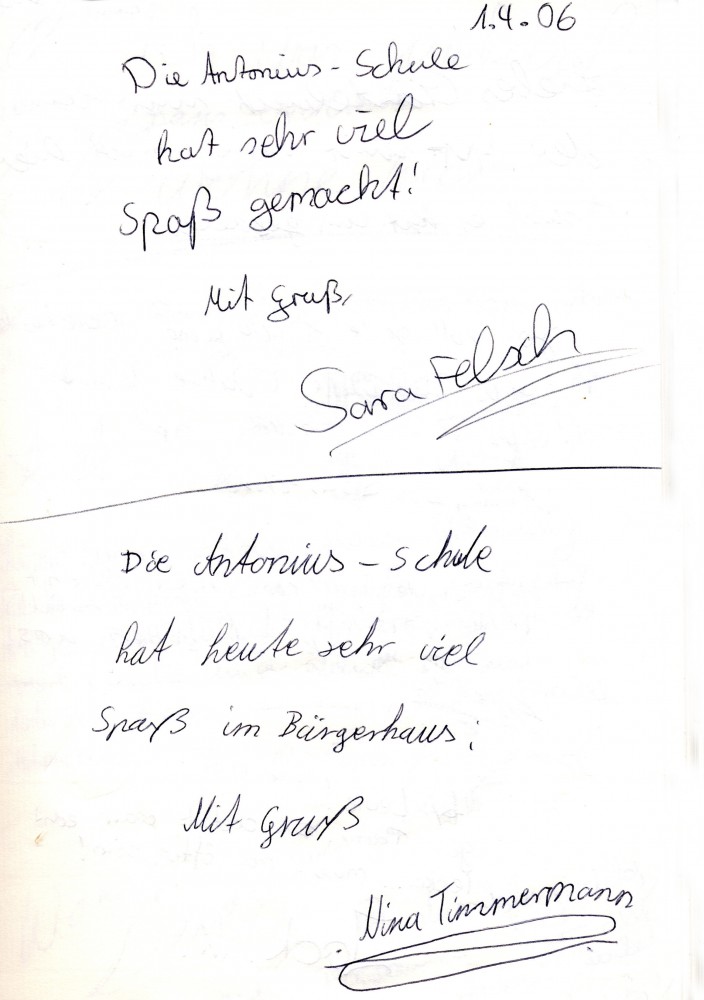 1.4.06
Die Antonius-Schule
hat sehr viel
Spaß gemacht!
Mit Gruß,
Sara Felsch
Die Antonius-Schule
hat heute sehr viel
Spaß im Bürgerhaus;
Mit Gruß
Nina Timmermann